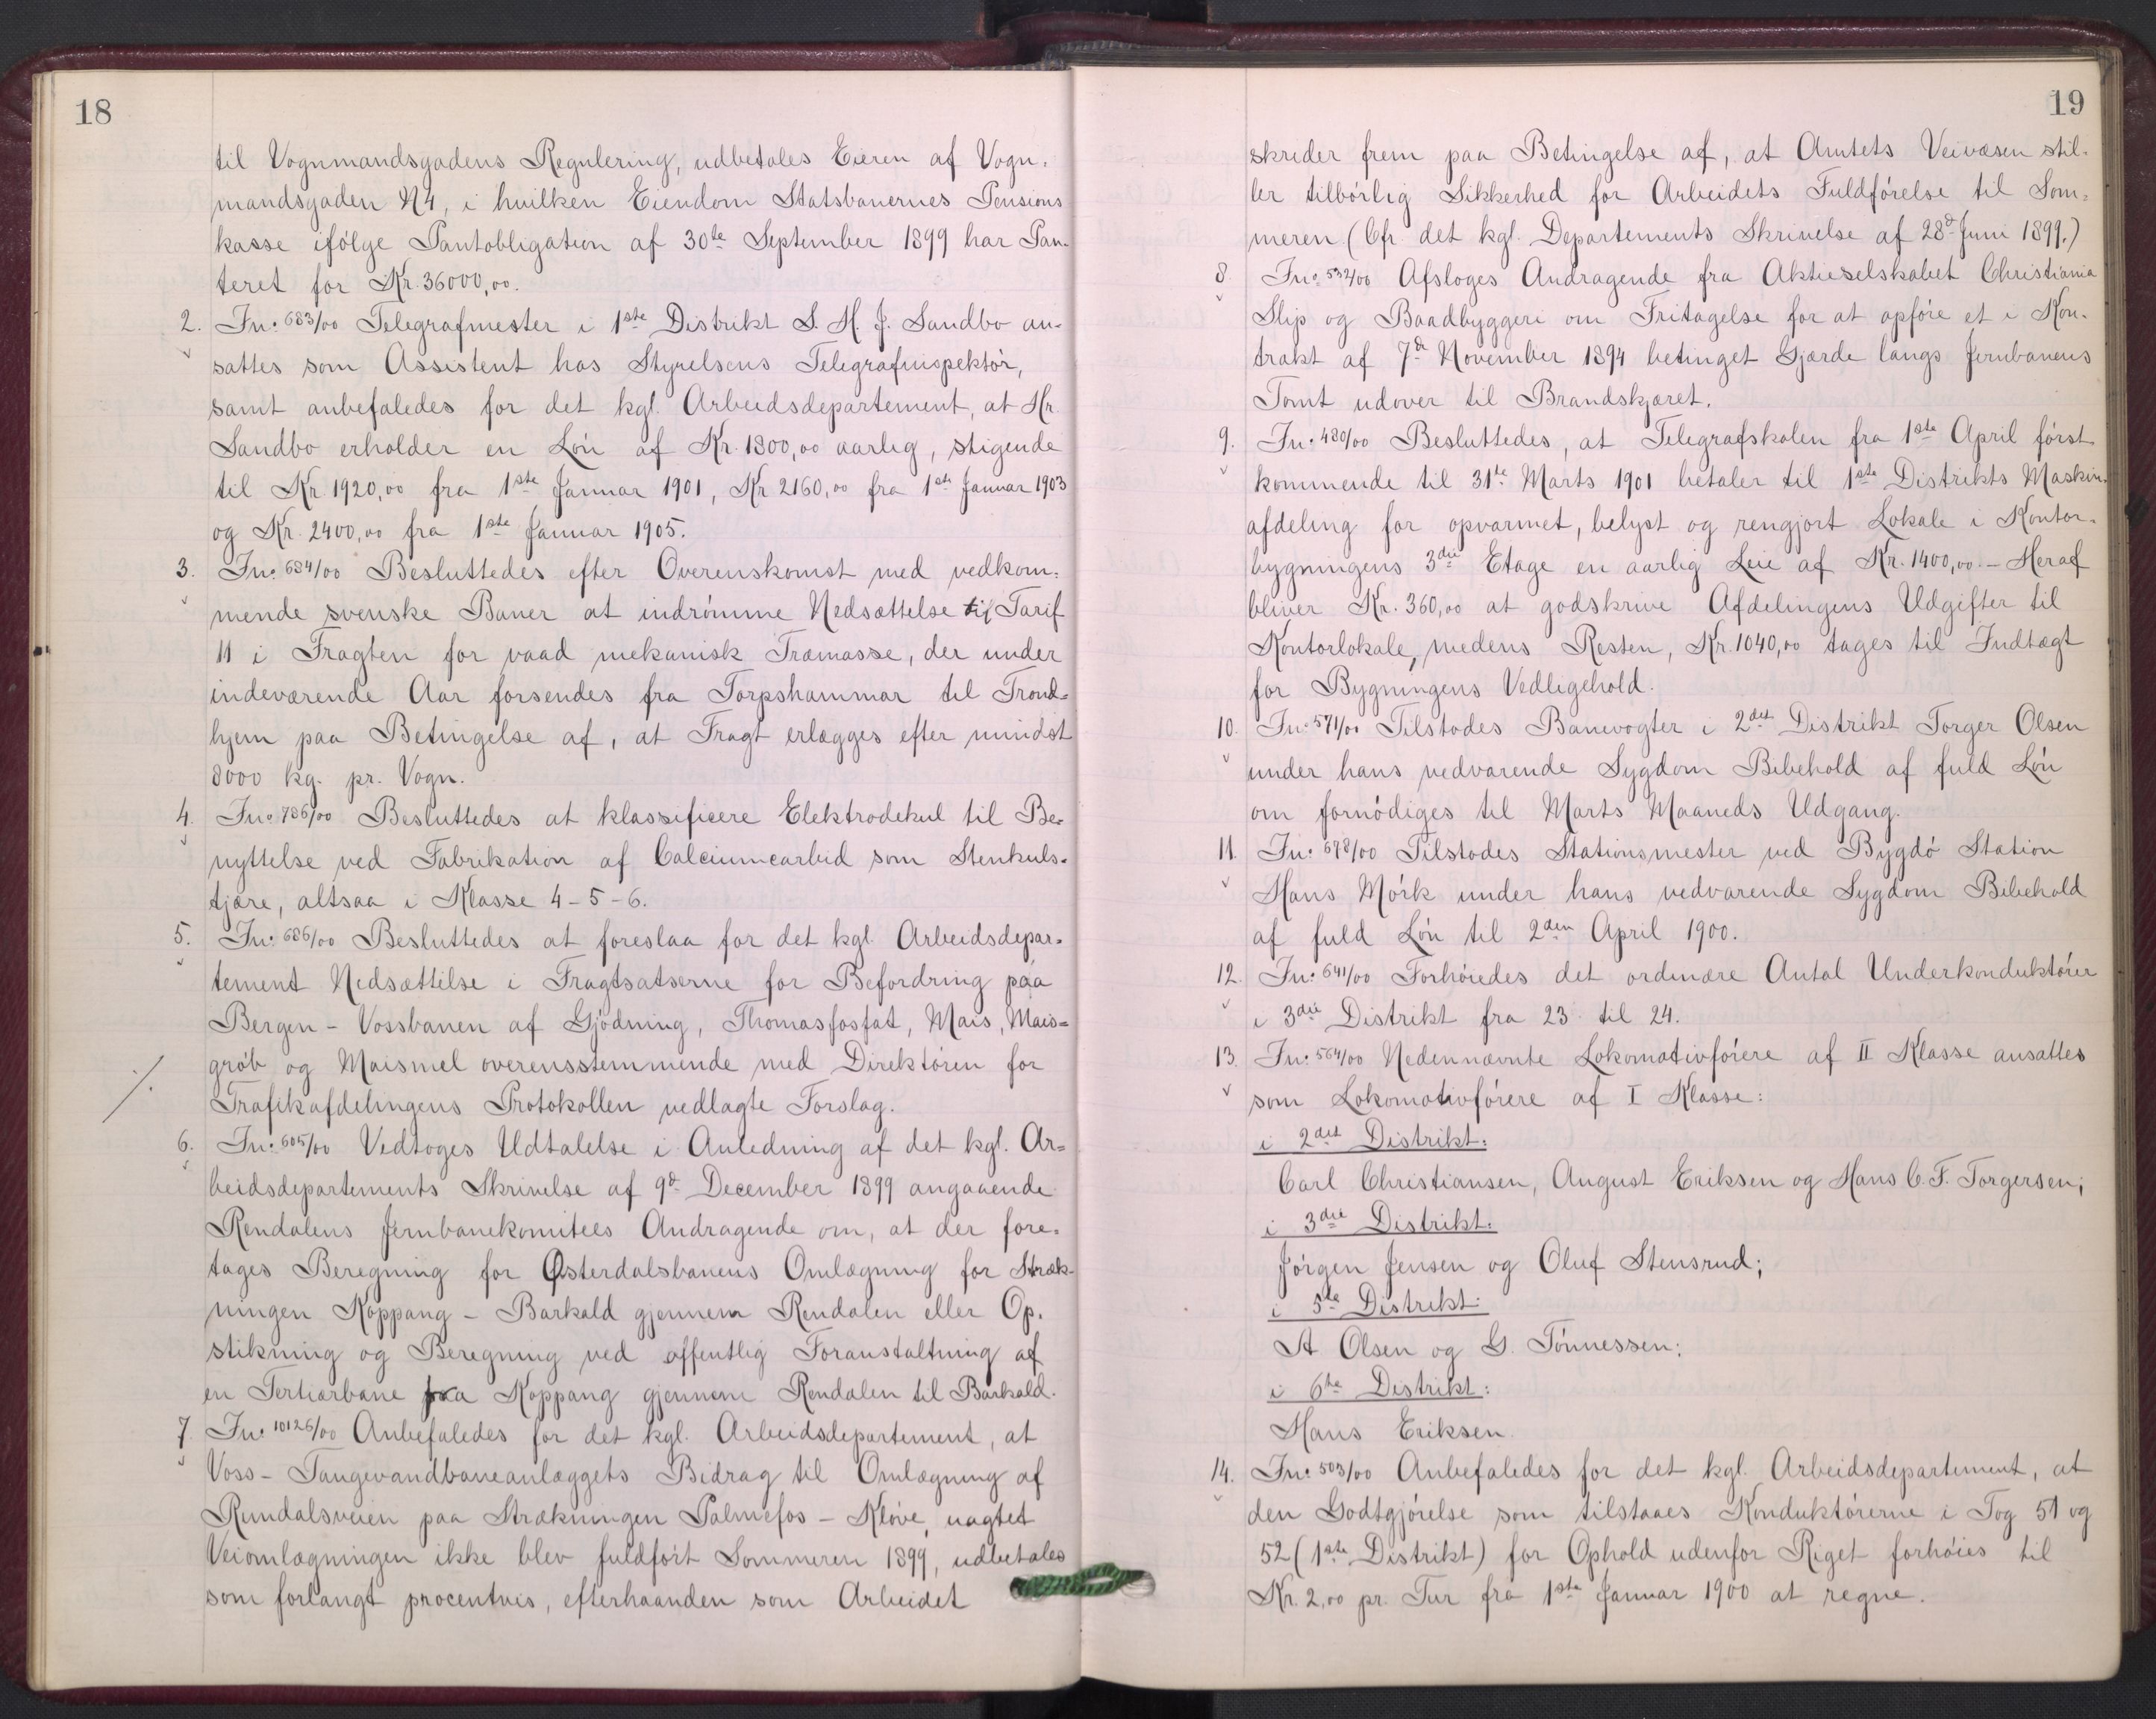 18
til Vognmandsgadens Regulering, udbetales Eieren af Vogn-
mandsgaden N4, i hvilken Eiendom Statsbanernes Pensions
kasse ifölge Pantobligation af 30te September 1899 har Pan-
teret for Kr. 36000,00.
2. Jn: 683/00 Telegrafmester i 1ste Distrikt S. H. J. Sandbo an-
sattes som Assistent hos Styrelsens Telegrafinspektör,
samt anbefaledes for det kgl. Arbeidsdepartement, at Hr.
Sandbo erholder en Lön af Kr. 1800,00 aarlig, stigende
til Kr 1920,00 fra 1ste Januar 1901, Kr 2160,00 fra 1ste Januar 1903
og Kr. 2400,00 fra 1ste Januar 1905.
3. Jn: 684/00 Besluttedes efter Overenskomst med vedkom-
mende svenske Baner at indrömme Nedsættelse til Tarif
11 i Fragten for vaad mekanisk Træmasse, der under
indeværende Aar forsendes fra Torpshammar til Trond-
hjem paa Betingelse af, at Fragt erlægges efter mindst
8000 kg. pr. Vogn.
4. Jn: 786/00 Besluttedes at klassificere Elektrodekul til Be-
nyttelse ved Fabrikation af Calciumcarbid som Stenkuls-
tjære, altsaa i Klasse 4-5-6.
5. Jn: 686/00 Besluttedes at foreslaa for det kgl. Arbeidsdepar-
tement Nedsættelse i Fragtsatserne for Befordring paa
Bergen - Vossbanen af Gjödning, Thomasfosfat, Mais, Mais-
gröb og Maismel overensstemmende med Direktören for
./. Trafikafdelingens Protokollen vedlagte Forslag.
6. Jn: 605/00 Vedtoges Udtalelse i Anledning af det kgl. Ar-
beidsdepartements Skrivelse af 9d December 1899 angaaende
Rendalens Jernbanekomitees Andragende om, at der fore-
tages Beregning for Østerdalsbanens Omlægning for Stræk-
ningen Koppang - Barkald gjennem Rendalen eller Op-
stikning og Beregning ved offentlig Foranstaltning af
en Tertiærbane fra Koppang gjennem Rendalen til Barkald.
7. Jn: 10126/00 Anbefaledes for det kgl. Arbeidsdepartement, at
Voss- Taugevandbaneanlæggets Bidrag til Omlægning af
Rundalsveien paa Strækningen Palmefos - Klöve, uagtet
Veiomlægningen ikke blev fuldfört Sommeren 1899, udbetales
som forlangt procentvis, efterhaanden som Arbeidet
19
skrider frem paa Betingelse af, at Amtets Veivæsen stil-
ler tilbörlig Sikkerhed for Arbeidets Fuldförelse til Som-
meren (Cfr. det kgl. Departements Skrivelse af 28d Juni 1899.)
8. Jn: 532/00 Afsloges Andragende fra Aktieselskabet Christiania
Slip og Baadbyggeri om Fritagelse for at opföre et i Kon-
trakt af 7de November 1894 betinget Gjærde langs Jernbanens
Tomt udover til Brandskjæret.
9. Jn: 480/00 Besluttedes, at Telegrafskolen fra 1ste April först
kommende til 31te Marts 1901 betaler til 1ste Distrikts Maskin-
afdeling for opvarmet, belyst og rengjort Lokale i Kontor-
bygningens 3die Etage en aarlig Leie af Kr. 1400,00. - Heraf
bliver Kr. 360,00 at godskrive Afdelingens Udgifter til
Kontorlokale, medens Resten, Kr. 1040,00 tages til Indtægt
for Bygningens Vedligehold.
10. Jn: 571/00 Tilstodes Banevogter i 2det Distrikt Torger Olsen
under hans vedvarende Sygdom Bibehold af fuld Lön
om fornödiges til Marts Maaneds Udgang.
11. Jn: 698/00 Tilstodes Stationsmester ved Bygdö Station
Hans Mörk under hans vedvarende Sygdom Bibehold
af fuld Lön til 2den April 1900.
12. Jn: 641/00 Forhöiedes det ordinære Antal Underkonduktörer
i 3die Distrikt fra 23 til 24.
13. Jn: 564/00 Nedennævnte Lokomotivförere af II Klasse ansattes
som Lokomotivförere af I Klasse:
i 2det Distrikt:
Carl Christiansen, August Eriksen og Hans C. F. Torgersen;
i 3die Distrikt:
Jörgen Jensen og Oluf Stensrud;
i 5te Distrikt:
A Olsen og G. Tönnessen;
i 6te Distrikt:
Hans Eriksen.
14. Jn: 503/00 Anbefaledes for det kgl. Arbeidsdepartement, at
den Godtgjörelse som tilstaaes Konduktörerne i Tog 51 og
52 (1ste Distrikt) for Ophold udenfor Riget forhöies til
Kr. 2,00 pr. Tur fra 1ste Januar 1900 at regne.